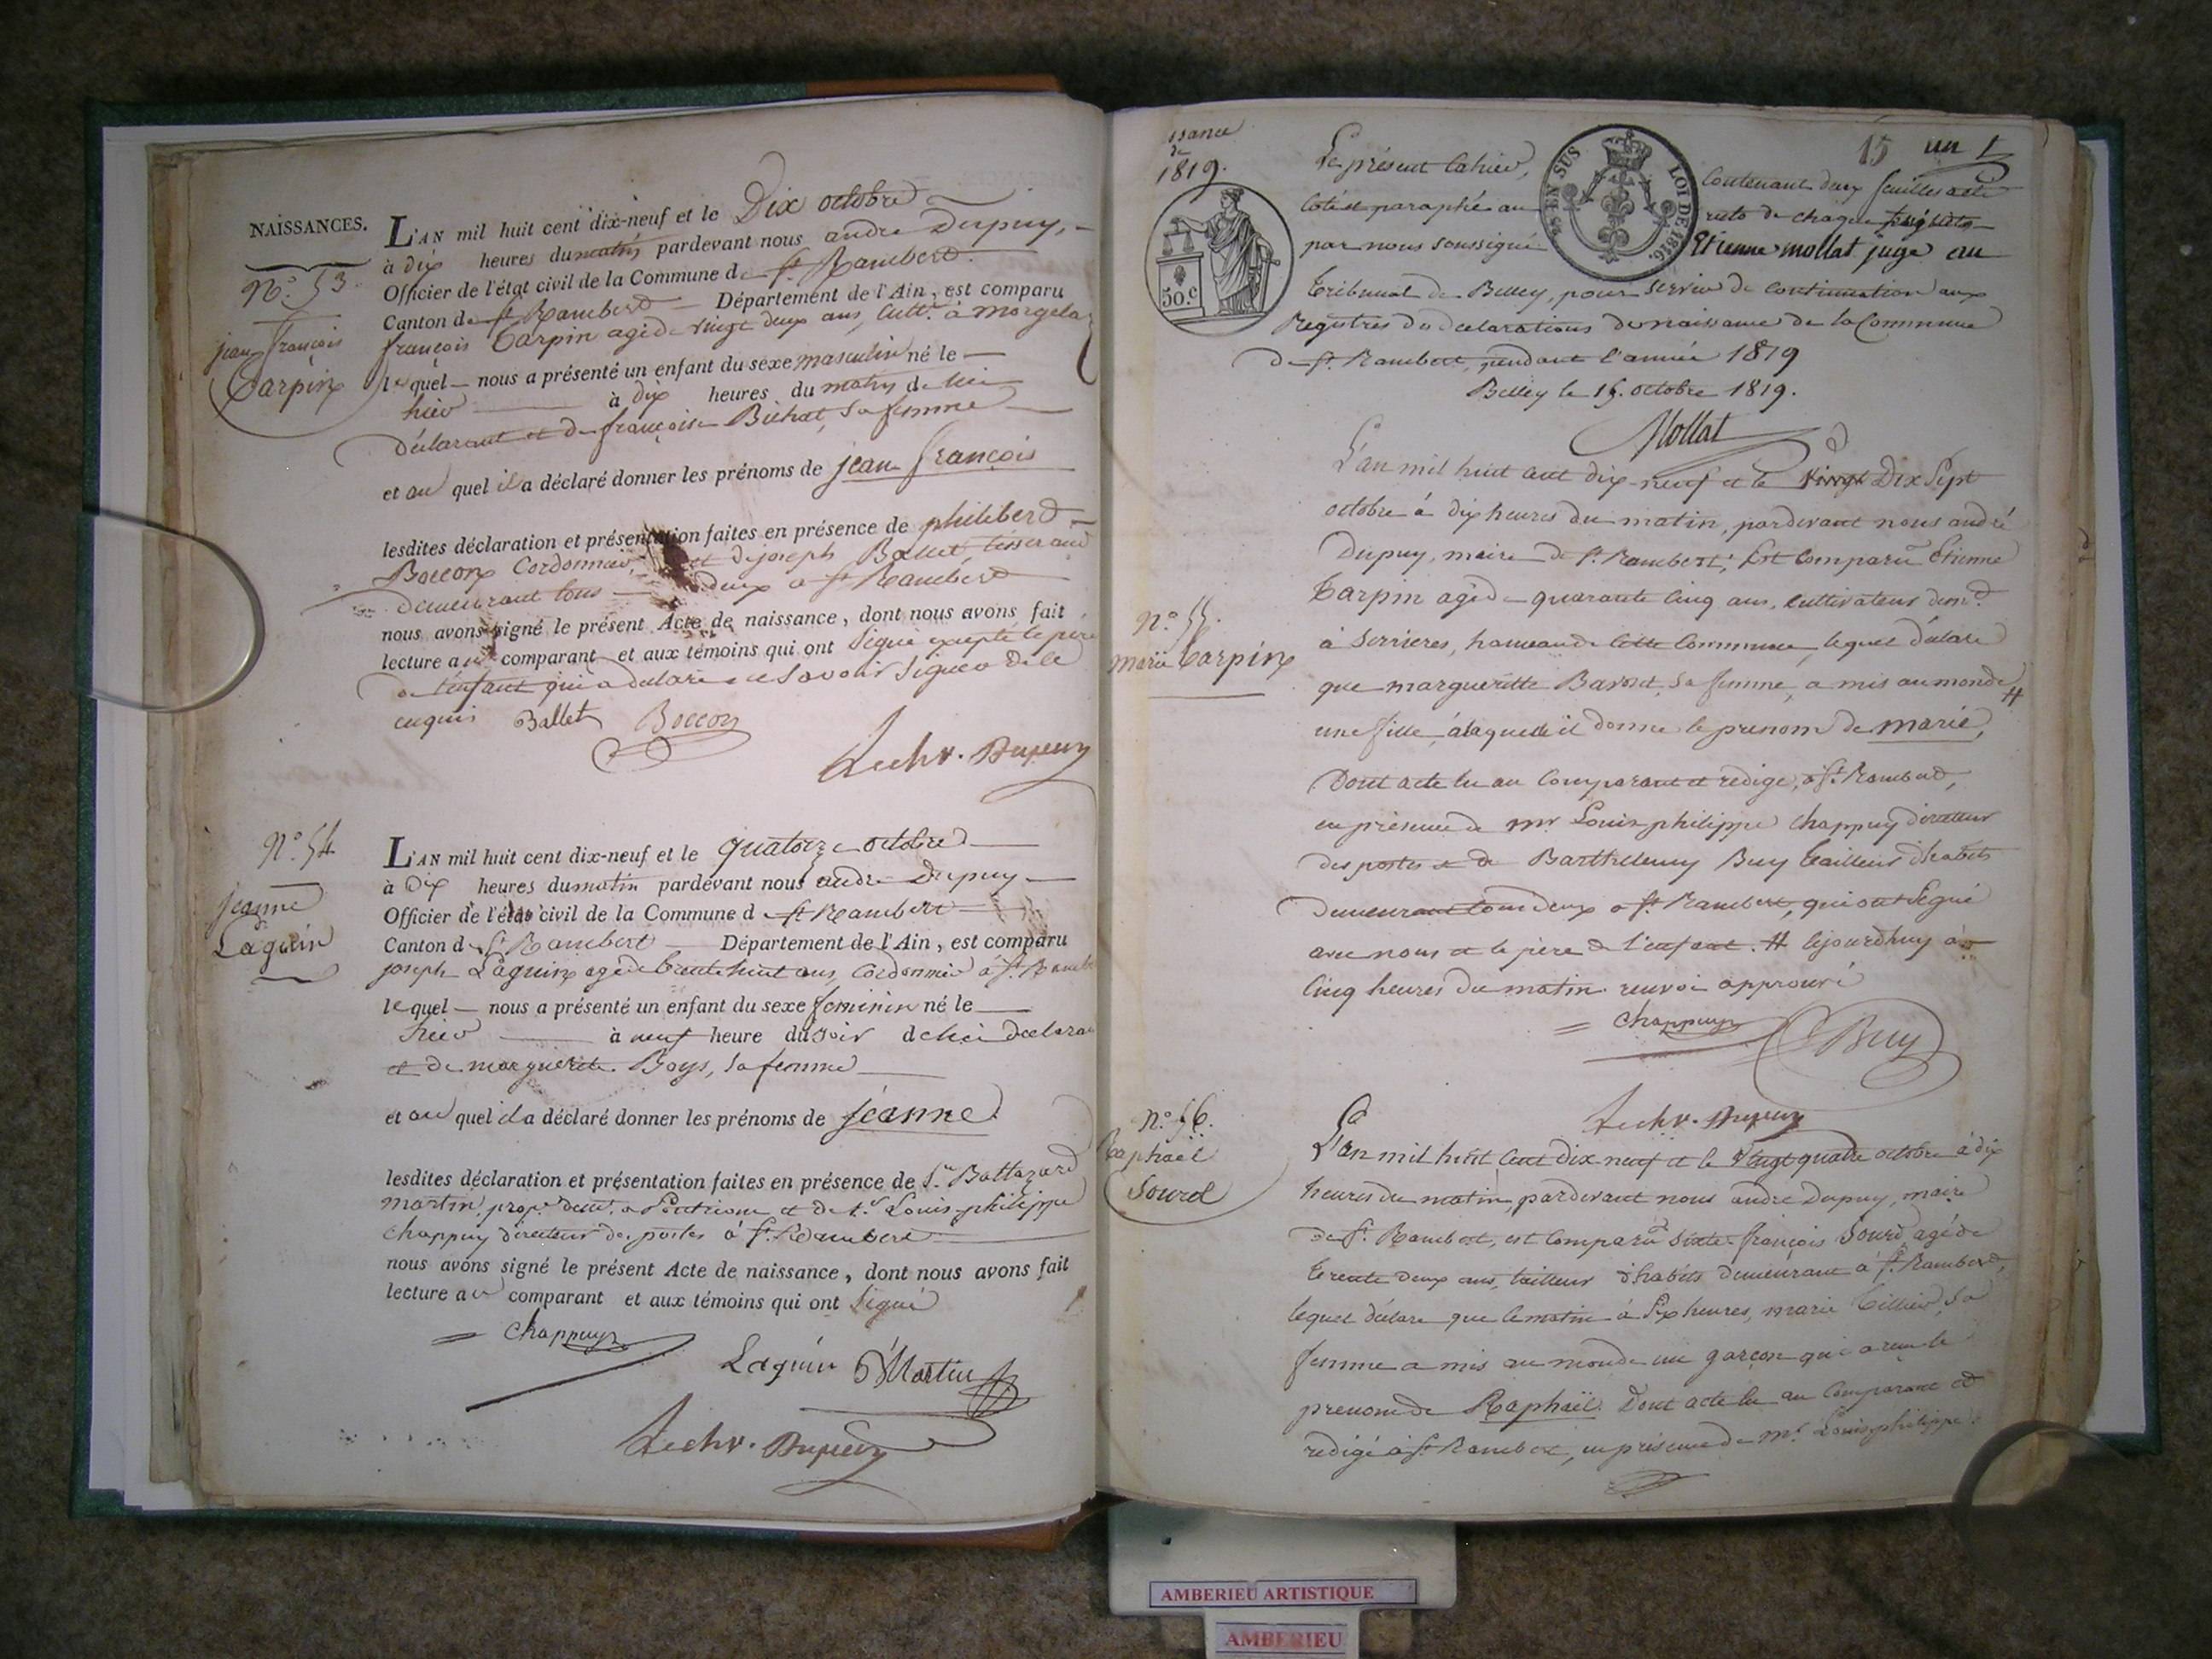 NAISSANCES.
N.° 53
jean françois
Carpin
L'AN mil huit cent dix-neuf et le Dix octobre
à dix heures du matin pardevant nous andre Dupuy,
Officier de l'état civil de la Commune de St. Rambert
Canton de St. Rambert Département de l'Ain, est comparu
françois Carpin agé de vingt deux ans, cultr. à morgela
lequel nous a présenté un enfant du sexe masculin né le
hier à dix heures du matin de lui
déclarant et de françoise Bichat, sa femme
et au quel il a déclaré donner les prénoms de jean françois
lesdites déclaration et présentation faites en présence de philibert
Boccon Cordonnier, et de joseph Ballet tisserand
demeurant tous deux a St Rambert
nous avons signé le présent Acte de naissance, dont nous avons fait
lecture au comparant et aux témoins qui ont signé excepté le père
de l'enfant qui a déclaré ne savoir signer de ce
enquis Ballet Boccon
Dupuy
N.° 54
jeanne
Laguin
L'AN mil huit cent dix-neuf et le quatorze octobre
à Dix heures du matin pardevant nous andre Dupuy
Officier de l'état civil de la Commune de St Rambert
Canton de St. Rambert Département de l'Ain, est comparu
joseph Laguin agé de trente huit ans, Cordonnier à St. Rambert
lequel nous a présenté un enfant du sexe feminin né le
hier à neuf heure du soir de lui declarant
et de marguerite Boys, sa femme
et au quel il a déclaré donner les prénoms de jeanne
lesdites déclaration et présentation faites en présence de Sr. Baltazard
martin, propre. demt. a et de Sr. Louis philippe
Chappuy directeur des postes à St. Rambert
nous avons signé le présent Acte de naissance, dont nous avons fait
lecture au comparant et aux témoins qui ont signé
Chappuy
Laguin Martin
Dupuy
1819.
50.c
EN SUS LOI DE 1816.
15 un 1
Le présent Cahier, contenant deux feuilles
coté et paraphé au recto de chaque
par nous soussigné Etienne mollat juge au
Tribunal de Belley, pour servir de continuation aux
Registres de declarations de naissance de la Commune
de St. Rambert, pendant l'année 1819
Belley le 15. octobre 1819.
Mollat
N.° 55.
marie Carpin
L'an mil huit cent dix-neuf et le Vingt Dix Sept
octobre à dix heures du matin, pardevant nous andré
Dupuy, maire de St. Rambert; Est Comparu Etienne
Carpin agé de quarante cinq ans, cultivateur demt.
à Serrieres, hameau de cette Commune, lequel déclare
que marguerite sa femme, a mis au monde #
une fille, à laquelle il donne le prenom de marie,
Dont acte lu au Comparant et redigé, à St. Rambert,
en présence de mr. Louis philippe Chappuy directeur
des postes et de Barthelemy Buy tailleur d'habits
demeurant tous deux a St. Rambert, qui ont signé
avec nous et le père de l'enfant. # cejourdhuy à
Cinq heures du matin. renvoi approuvé
Chappuy Buy
Dupuy
N.° 56.
Raphaël
Sourd
L'an mil huit Cent Dix neuf et le Vingt quatre octobre à dix
heures du matin, pardevant nous andré Dupuy, maire
de St. Rambert, est comparu Sixte françois Sourd agé de
trente deux ans, tailleur d'habits demeurant à St. Rambert,
lequel déclare que ce matin à Six heures, marie Tillier, sa
femme a mis au monde un garçon qui a reçu le
prenom de Raphaël. Dont acte lu au Comparant et
redigé à St. Rambert, en présence de Mr. Louis philippe
AMBERIEU ARTISTIQUE
AMBERIEU